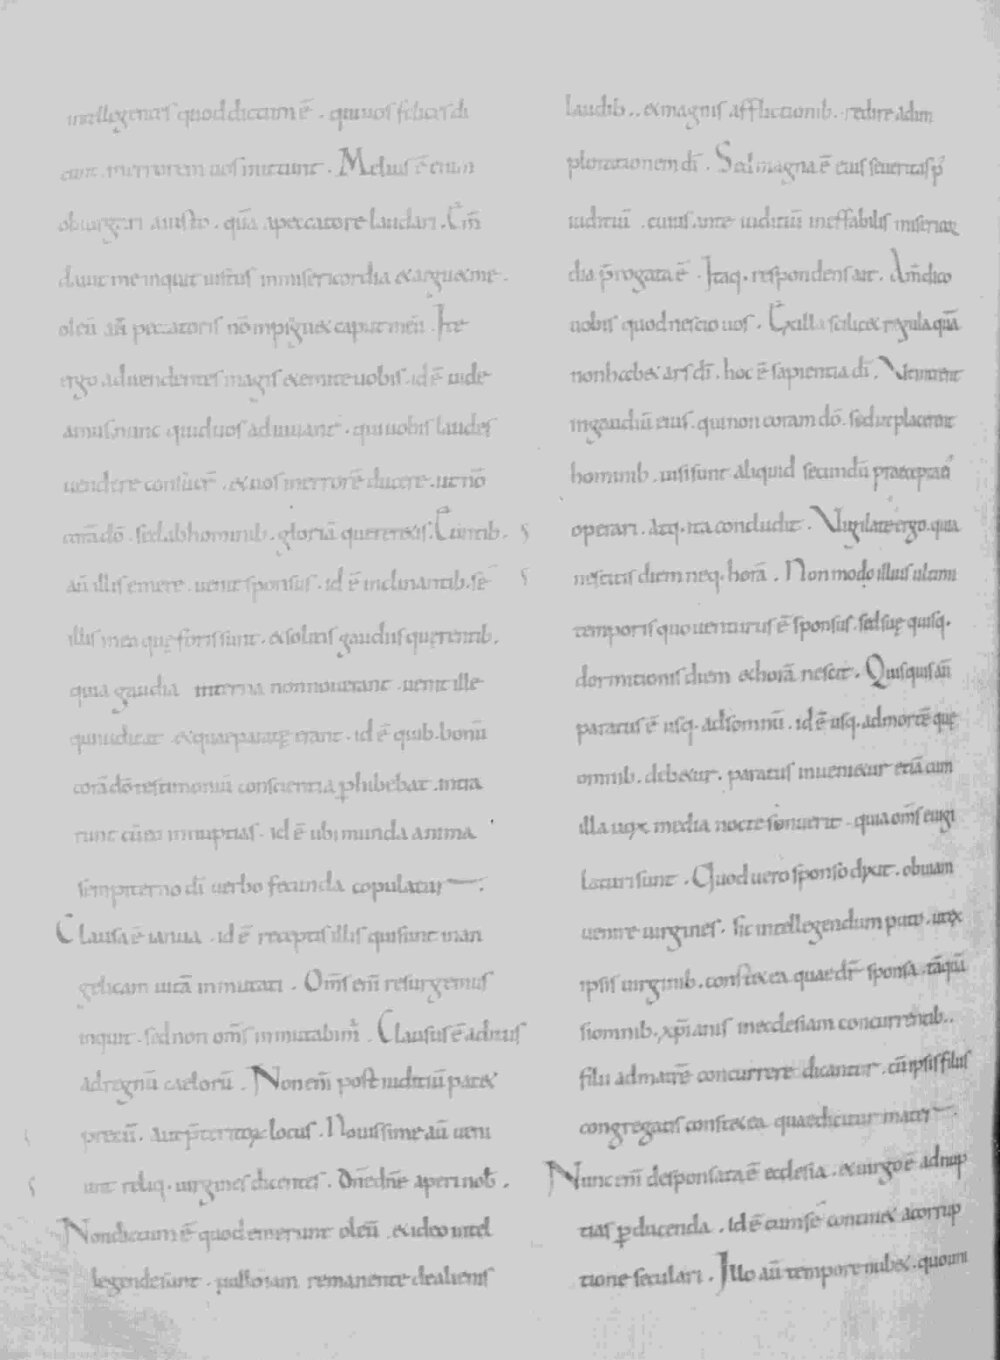 intellegentes quod dictum ē . qui uos felices di
cunt . in errorem uos mittunt . Melius ē enim
obiurgari a iusto . quā a peccatore laudari . Em̄
dauit me inquit iustus in misericordia et arguet me .
oleū aū peccatoris nō inpinguet caput meū . Ite
ergo ad uendentes magis et emite uobis . id ē uide
amus nunc quid uos adiuuant . qui uobis laudes
uendere consuer̄ . et uos in errorē ducere . ut nō
corā dō . sed ab hominib . gloriā quereretis . Euntib .
aū illis emere . uenit sponsus . id ē inclinantib . se
illis in ea quę foris sunt . et solitis gaudiis quęrentib .
quia gaudia interna non nouerant . uenit ille
qui iudicat . et quae paratę erant . id ē quib . bonū
corā dō testimoniū conscientia phibebat . intra
runt cū eo in nuptias . id ē ubi munda anima
sempiterno dī uerbo fecunda copulatur .
Clausa ē ianua . id ē receptis illis qui sunt in an
gelicam uitā inmutati . Om̄s em̄ resurgemus
inquit . sed non om̄s inmutabim̄ . Clausus ē aditus
ad regnū caelorū . Non em̄ post iuditiū patet
precū . aut p̄ceritoꝝ locus . Nouissime aū ueni
unt reliq . uirgines dicentes . Dn̄e dn̄e aperi nob̄ .
Non dictum ē quod emerunt oleū . et ideo intel
legende sunt . nullo iam remanente de alienis
laudib .. et magnis afflictionib . redire ad im
plorationem dī . Sed magna ē eius seueritas p̄
iuditiū . cuius ante iuditiū ineffabilis miseric
dia p̄rogata ē . Itaq . respondens ait . Am̄ dico
uobis quod nescio uos . Ex illa scilicet regula quā
non habet ars dī . hoc ē sapientia dī . Ne intrent
in gaudiū eius . qui non coram dō . sed ut placerent
hominib . uisi sunt aliquid secundū praecepta eī
operari . atq . ita concludit . Vigilate ergo . quia
nescitis diem neq . horā . Non modo illius ultimi
temporis quo uenturus ē sponsus . sed suę quisq .
dormitionis diem et horā nescit . Quisquis aū
paratus ē usq . ad somnū . id ē usq . ad mortē quę
omnib . debetur . paratus inuenietur etiā cum
illa uox media nocte sonuerit . quia om̄s euigi
laturi sunt . Quod uero sponso dixit . obuiam
uenire uirgines . sic intellegendum puto . ut ex
ipsis uirginib . constet ea quae dr̄ sponsa . tāquā
si omnib . xp̄ianis in ecclesiam concurrentib ..
filii ad matrē concurrere dicantur . cū ipsis filiis
congregatis constet ea quae dicitur mater .
Nunc em̄ desponsata ē ecclesia . et uirgo ē ad nup
tias ꝑducenda . id ē cum se continet a corrup
tione seculari . Illo aū tempore nubet . quo uni